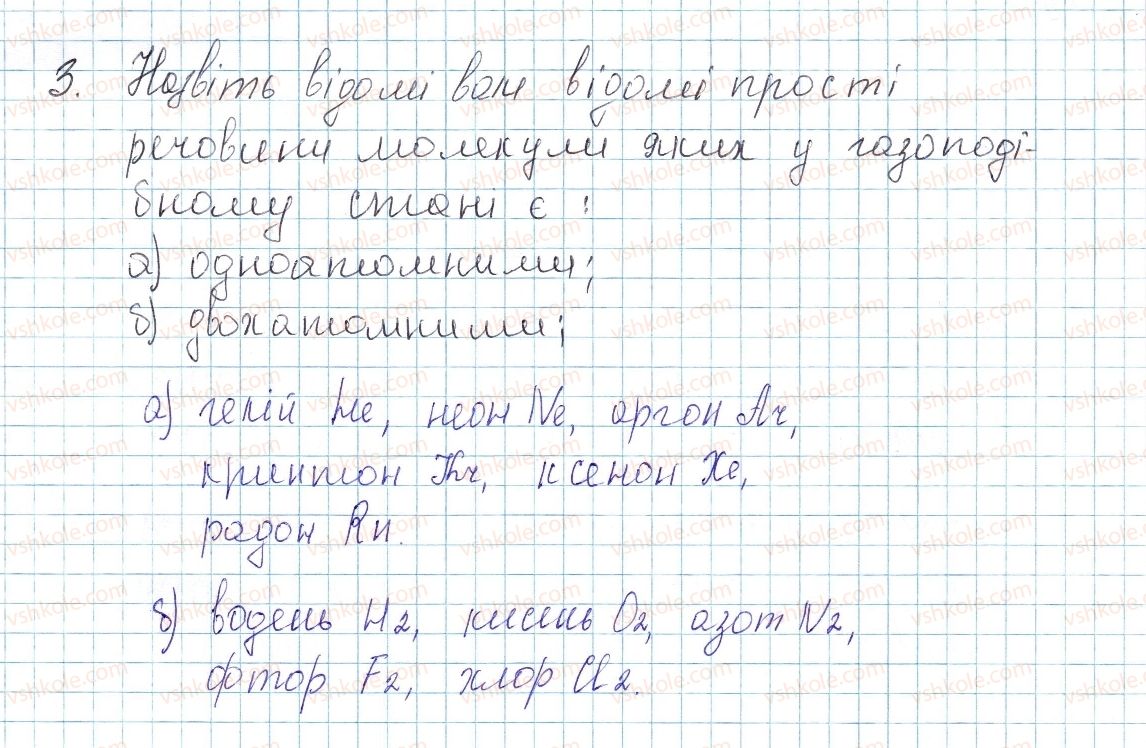 3. Назвіть відомі вам відомі прості
речовини молекули яких у газоподі-
бному стані є:
а) одноатомними;
б) двохатомними;
а) гелій He, неон Ne, аргон Ar,
криптон Kr, ксенон Xe,
радон Rn.
б) водень H2, кисень O2, азот N2,
фтор F2, хлор Cl2.